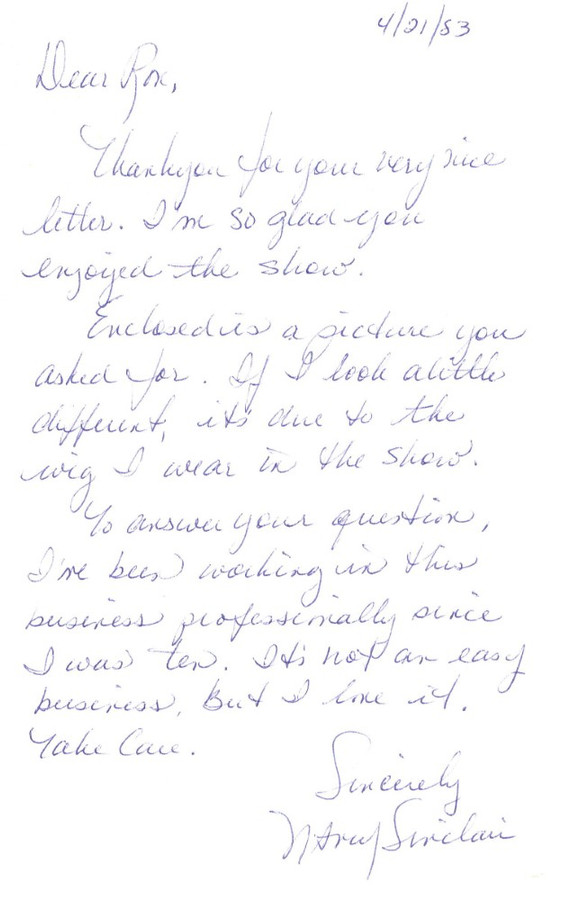 4/21/83
Dear Ron,
Thankyou for your very nice
letter. I'm so glad you
enjoyed the show.
Enclosed is a picture you
asked for. If I look a little
different, it's due to the
wig I wear in the show.
To answer your question,
I've been working in this
business professionally since
I was ten. It's not an easy
business, But I love it.
Take Care.
Sincerely
Nancy Sinclair